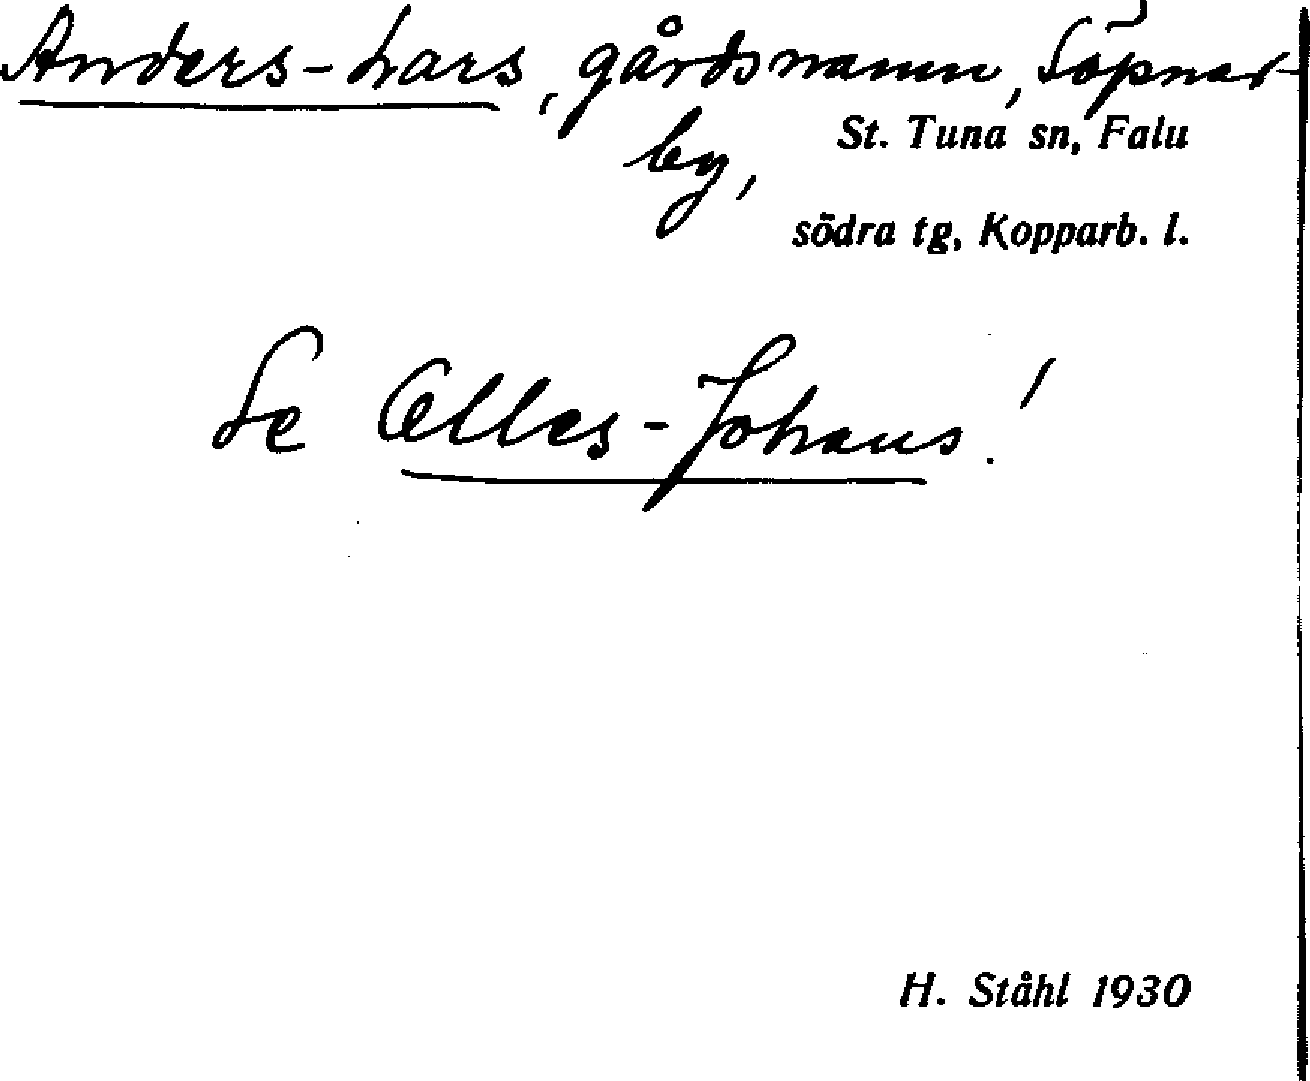 Anders-Lars, gårdsnamn, Söpnar-
by,
St. Tuna sn, Falu
södra tg, Kopparb. l.
Se Olles-Johans!
H. Ståhl 1930